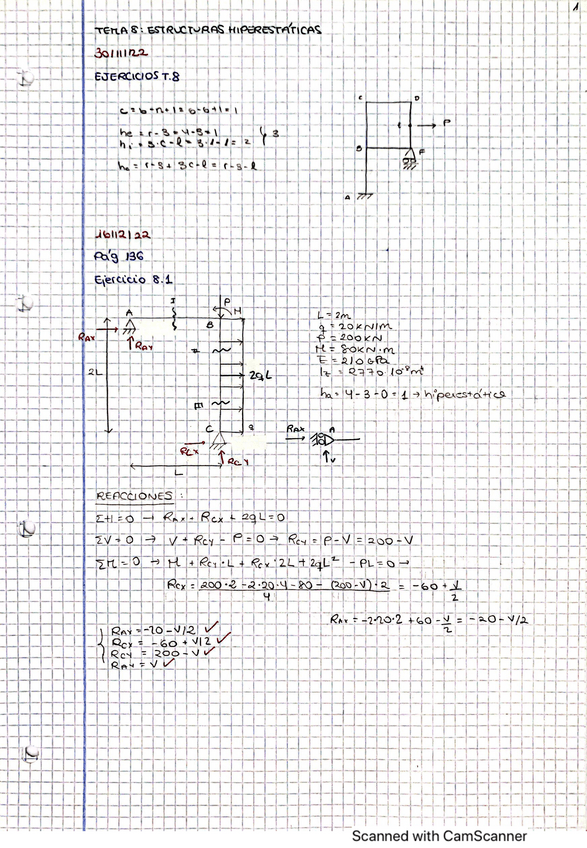 1
TEMA 8: ESTRUCTURAS HIPERESTÁTICAS
30/11/22
EJERCICIOS T.8
c = b-n+1 = 6-6+1 = 1
he = r-3 = 4-3 = 1
hi = 3·c-l = 3·1-1 = 2 } 3
ha = r-3+3c-l = r-3-l
C D
E P
B F
A
16/12/22
Pág 136
Ejercicio 8.1
I P
A M
B
RAX
RAY
II
2L 2qL
III
C q
RCX
RCY
L
L = 2m
q = 20kN/m
P = 200kN
M = 80kN·m
E = 210GPa
Iz = 2770·10⁻⁸m⁴
ha = 4-3-0 = 1 → hiperestática
RAX A
V
REACCIONES:
ΣH=0 → RAX + RCX + 2qL = 0
ΣV=0 → V + RCY - P = 0 → RCY = P-V = 200-V
ΣM=0 → M + RCY·L + RCX·2L + 2qL² - PL = 0 →
RCX = 200·2 - 2·20·4 - 80 - (200-V)·2 / 4 = -60 + V/2
RAX = -2·20·2 + 60 - V/2 = -20 - V/2
{ RAX = -20 - V/2 ✓
RCX = -60 + V/2 ✓
RCY = 200 - V ✓
RAY = V ✓
Scanned with CamScanner